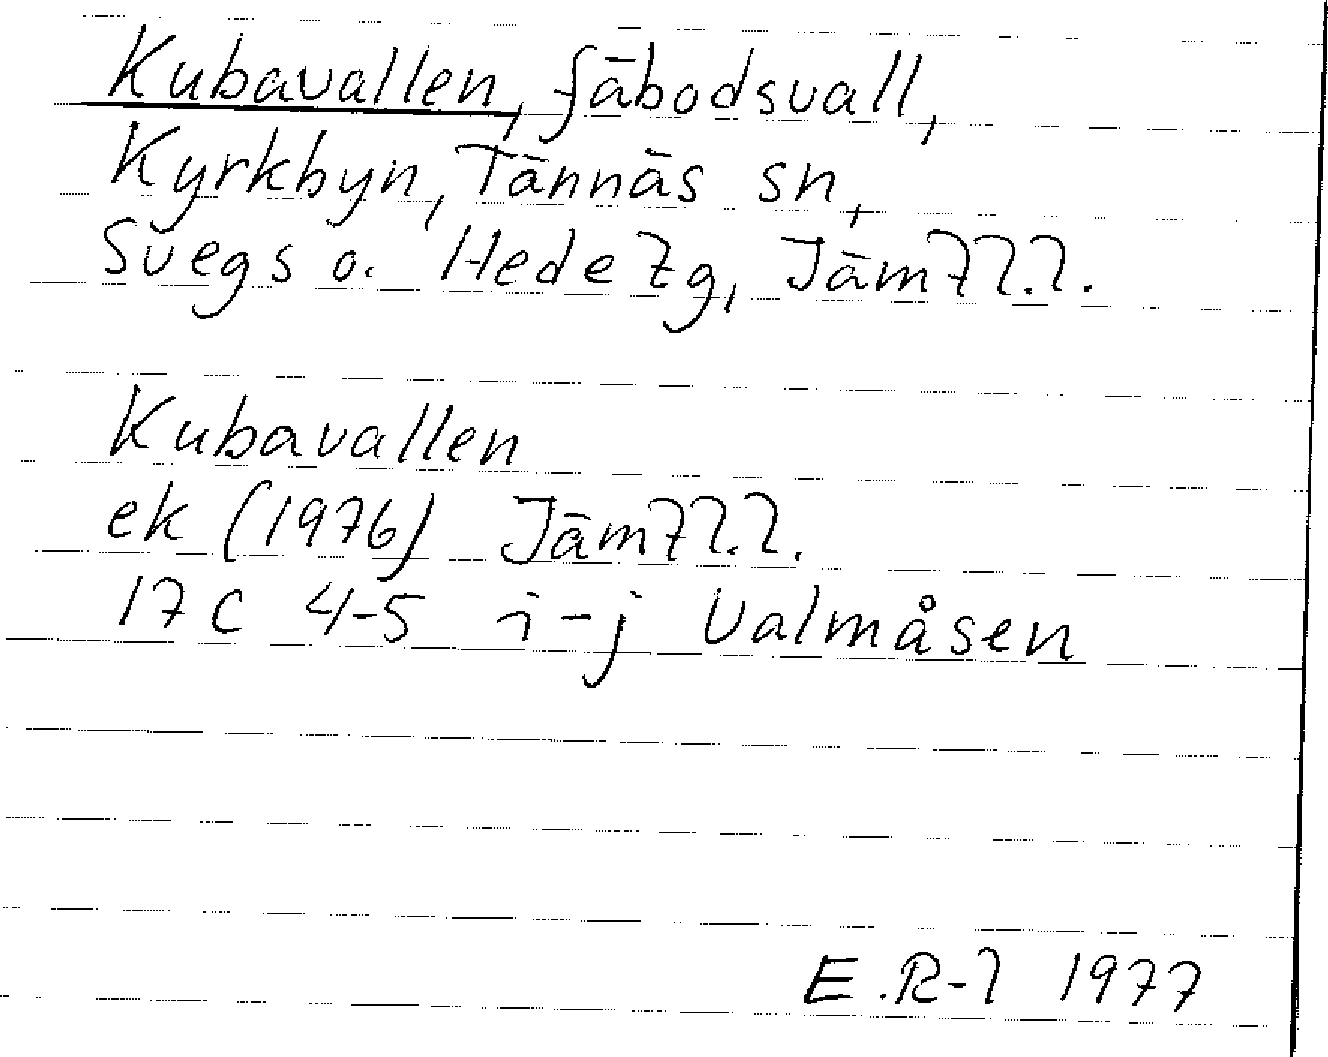 Kubavallen, fäbodsvall,
Kyrkbyn, Tännäs sn,
Svegs o. Hede tg, Jämtl.l.
Kubavallen
ek (1976) Jämtl.l.
17C 4-5 i-j Valmåsen
E.R-l 1977